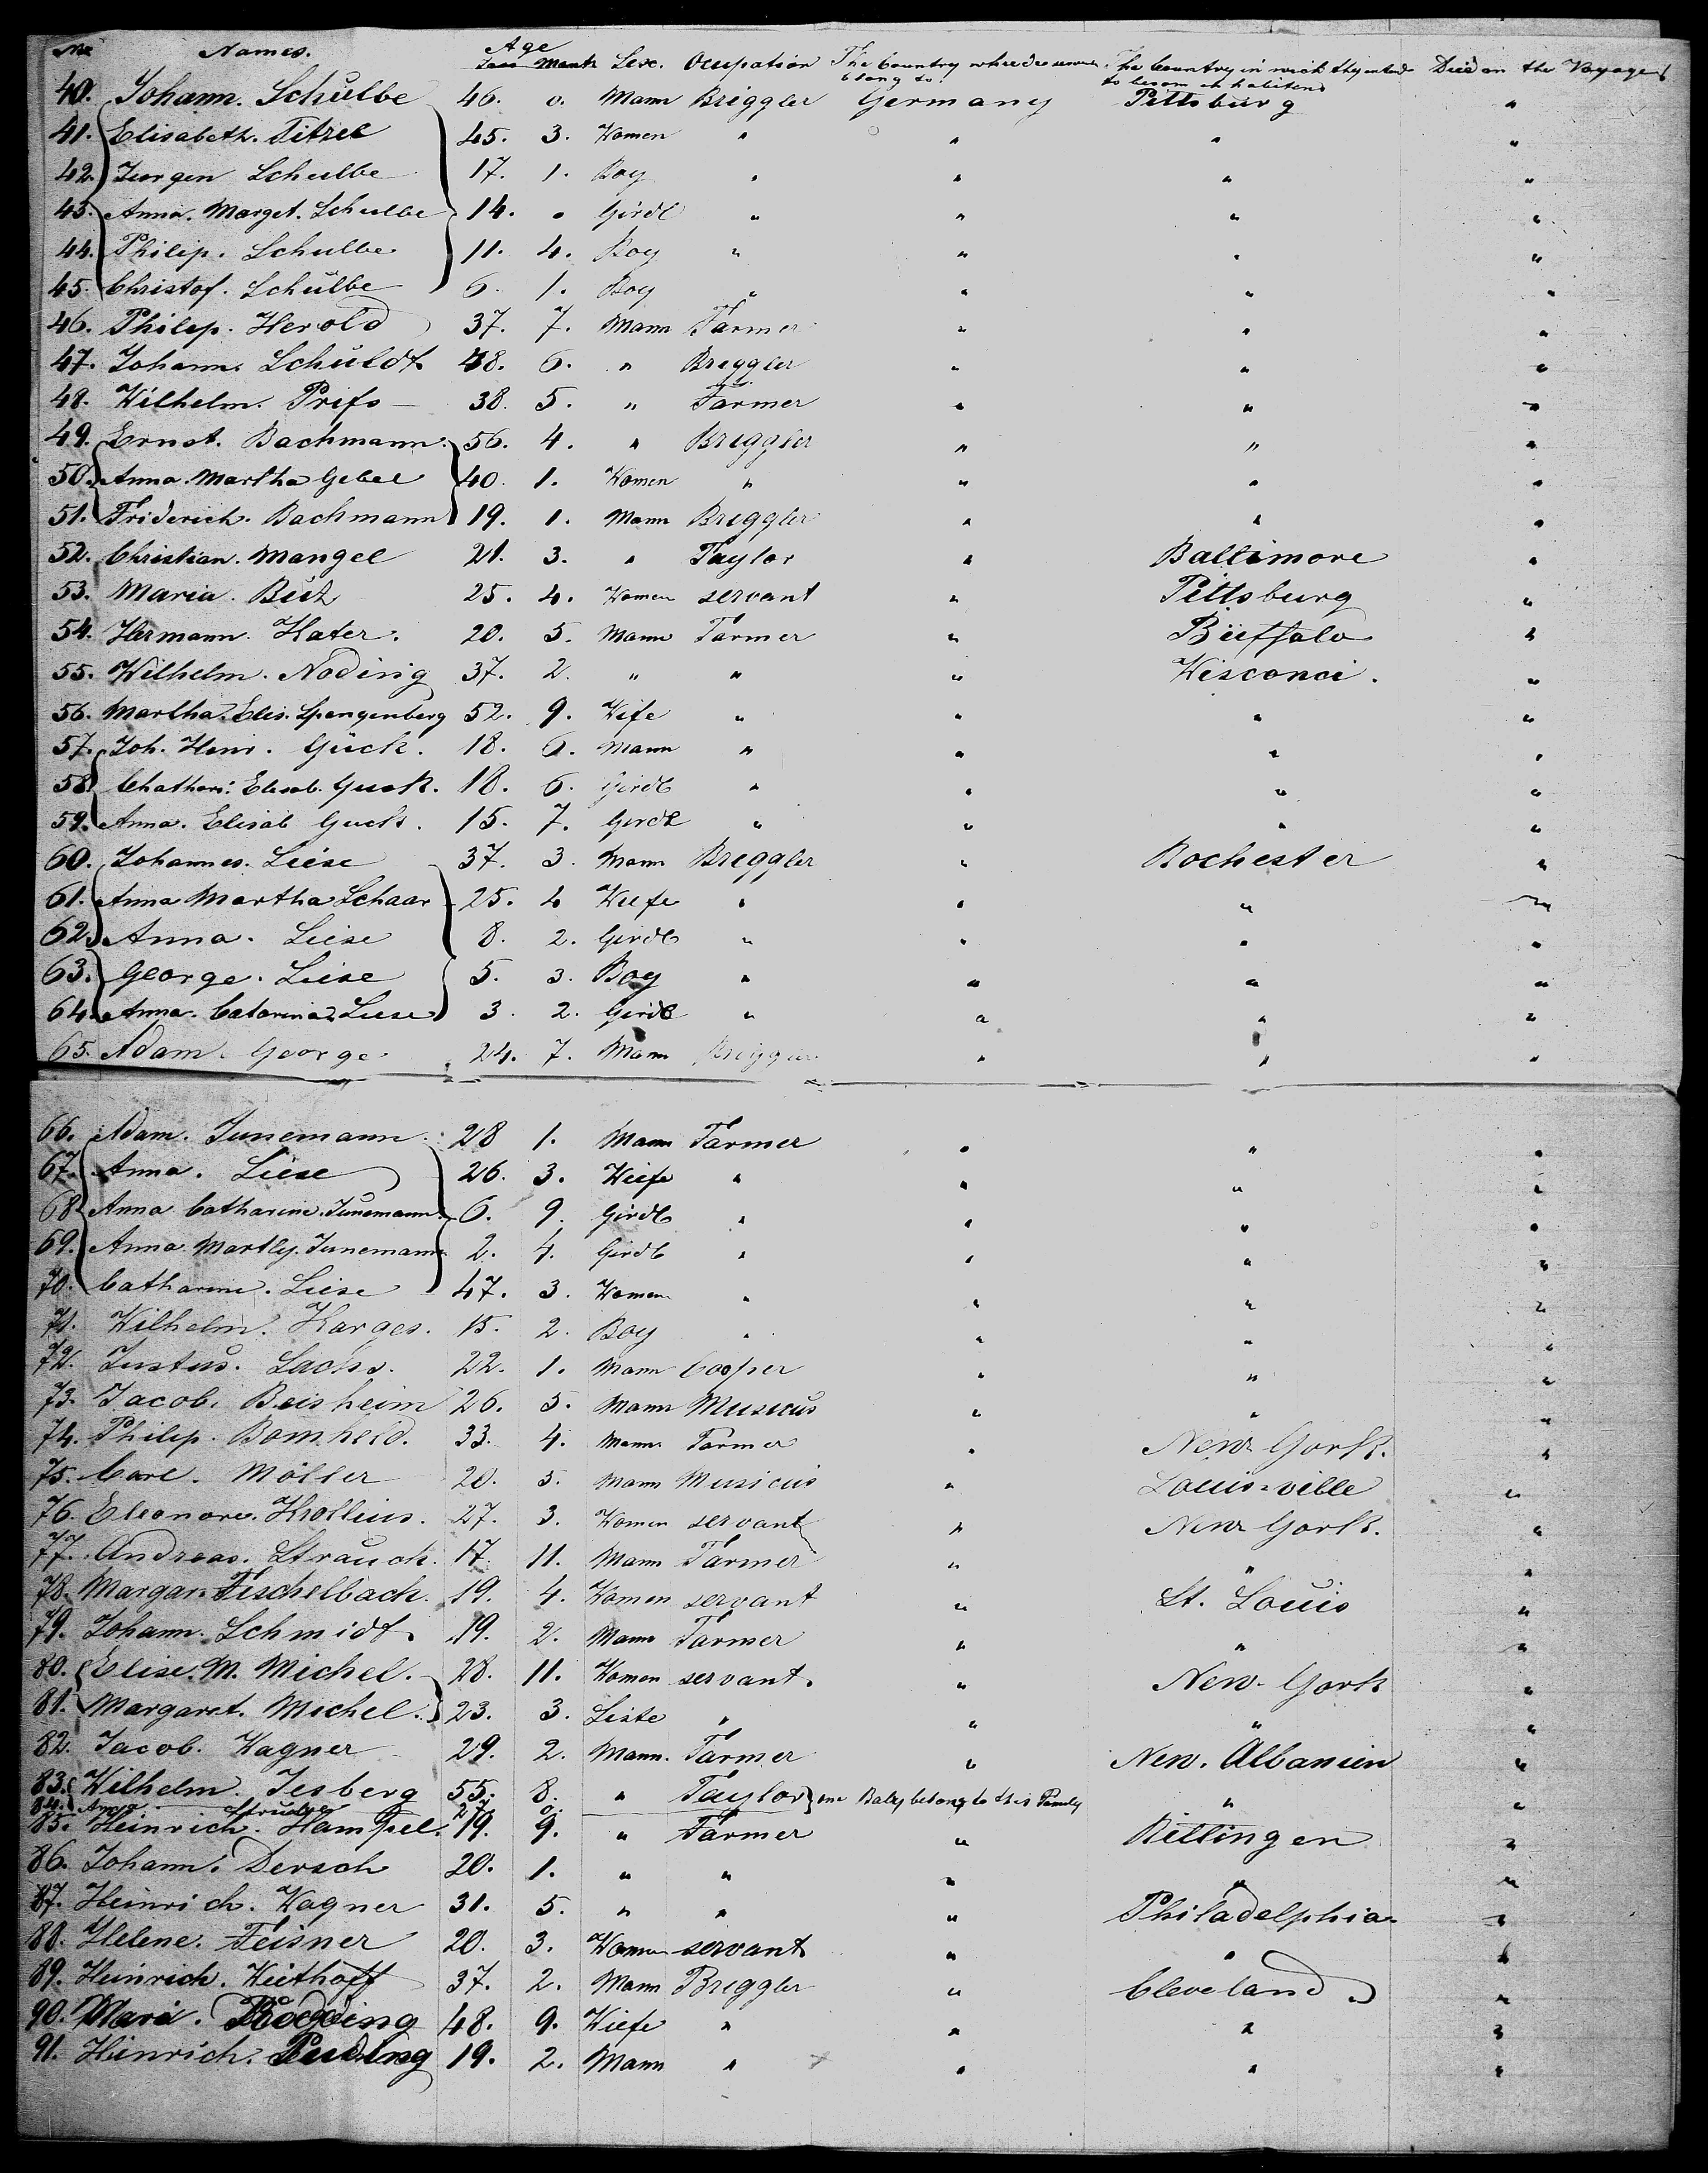 No Names. Age Years Month Sex. Ocupation The Country whie belong to. The Country in wich they to becom Died on the Voyage
40. Johann. Schülbe 46. 0. Mann Briggler Germany Pittsburg "
41. Elisabeth. Titzel 45. 3. Women " " " "
42. Jurgen Schulbe 17. 1. Boy " " " "
43. Anna. Marget. Schulbe 14. " Girdl " " " "
44. Philip. Schulbe 11. 4. Boy " " " "
45. Christof. Schülbe 6. 1. Boy " " " "
46. Philip. Herold 37. 7. Mann Farmer " " "
47. Johann. Schüldt 48. 6. " Briggler " " "
48. Wilhelm. Prifs 38. 5. " Farmer " " "
49. Ernst. Bachmann. 56. 4. " Briggler " " "
50. Anna. Martha Gebel 40. 1. Women " " " "
51. Friderich. Bachmann 19. 1. Mann Briggler " " "
52. Christian. Mangel 21. 3. " Taylor " Baltimore "
53. Maria. Butz 25. 4. Women servant " Pittsburg "
54. Hermann. Hater. 20. 5. Mann Farmer " Buffalo "
55. Wilhelm. Noding 37. 2. " " " Wisconci. "
56. Martha. Elis. Spengenberg 52. 9. Wife " " " "
57. Joh. Henr. Gück. 18. 6. Mann " " " "
58. Chathari: Elisab. Guck. 18. 6. Girdl " " " "
59. Anna. Elisab Guck. 15. 7. Girdl " " " "
60. Johannes. Liese 37. 3. Mann Briggler " Rochester "
61. Anna Martha Schaar 25. 4 Wiefe " " " "
62. Anna. Liese 8. 2. Girdl " " " "
63. George. Liese 5. 3. Boy " " " "
64. Anna. Catarina Liese 3. 2. Girdl " " " "
65. Adam. George 24. 7. Mann Briggler " " "
66. Adam. Junemann. 28 1. Mann Farmer " " "
67. Anna. Liese 26. 3. Wiefe " " " "
68. Anna Catharine. Junemann. 6. 9. Girdl " " " "
69. Anna Martly. Junemann 2. 4. Girdl " " " "
70. Catharine. Liese 47. 3. Women " " " "
71. Wilhelm. Karges. 15. 2. Boy " " " "
72. Justus. Sachs. 22. 1. Mann Cooper " " "
73. Jacob. Beisheim 26. 5. Mann Musicus " " "
74. Philip. Bomheid. 33. 4. Mann Farmer " New Gork. "
75. Carl. Möller 20. 5. Mann Musicus " Louis-ville "
76. Eleonore. Krollius. 27. 3. Women servant " New Gork. "
77. Andreas. Strauch. 17. 11. Mann Farmer " " "
78. Margar. Fischelbach. 19. 4. Women servant " St. Louis "
79. Johann. Schmidt. 19. 2. Mann Farmer " " "
80. Elise. M. Michel. 28. 11. Women servant. " New-Gork "
81. Margaret. Michel. 23. 3. Liste " " " "
82. Jacob. Wagner 29. 2. Mann. Farmer " New. Albanien "
83. Wilhelm. Jesberg 55. 8. " Taylor one Baby belong to this Famely " "
84. Anna 0.
85. Heinrich. Hampel. 19. 9. " Farmer " Rittingen "
86. Johann. Dersch 20. 1. " " " " "
87. Heinrich. Wagner 31. 5. " " " Philadelphia. "
88. Helene. Feisner 20. 3. Women servant " " "
89. Heinrich. Wiethoff 37. 2. Mann Briggler " Cleveland "
90. Mari. 48. 9. Wiefe " " " "
91. Hinrich. Puding 19. 2. Mann " " " "